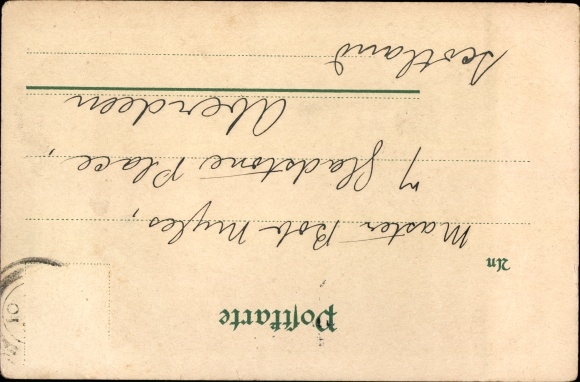 Postkarte
An
Master Bob Myles,
7 Gladstone Place,
Aberdeen
Scotland